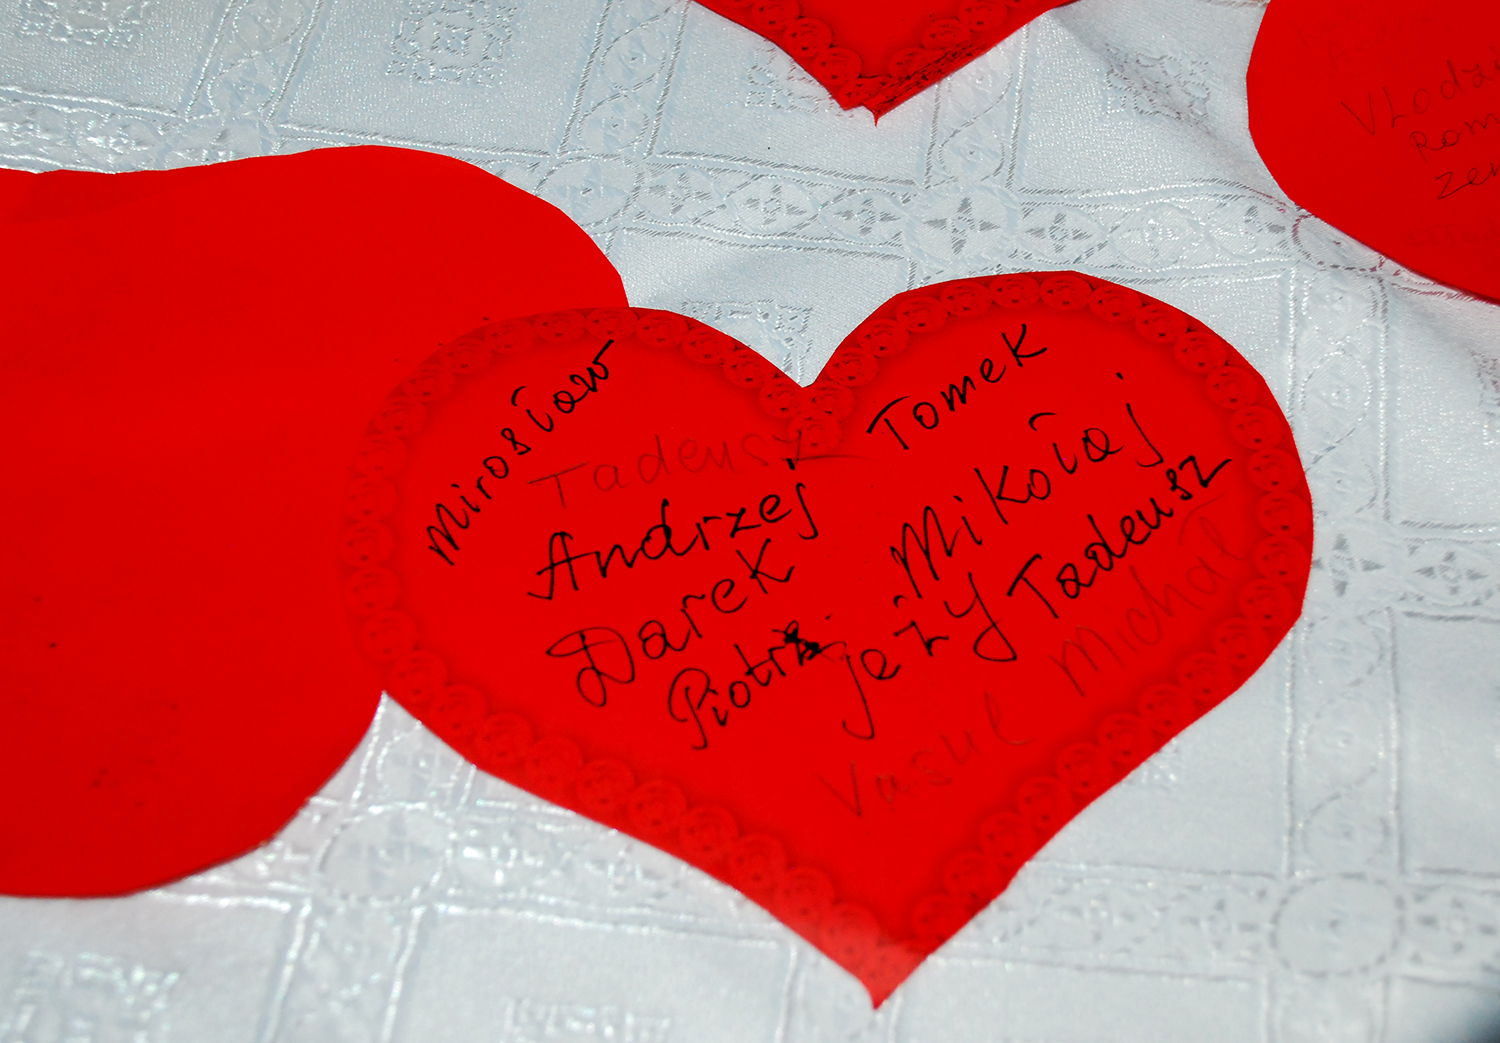 Mirosław
Tadeusz
Andrzej
Darek
Piotr
Tomek
Mikołaj
Jeży Tadeusz
Michał
Vasul
Vlodzi
Rom
Zen